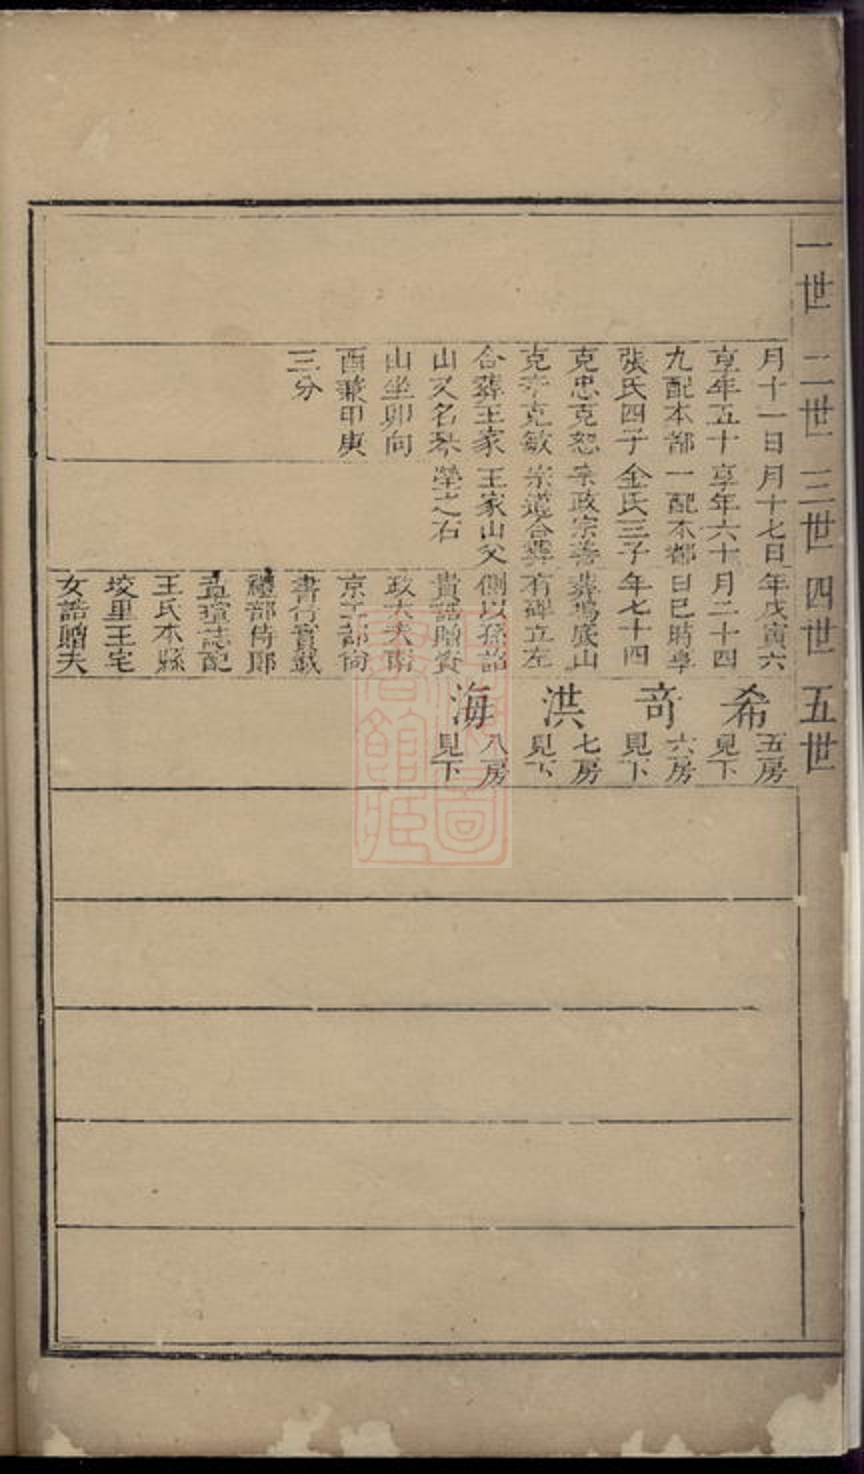 一世
二世
三世
四世
五世
月十一日
享年五十
九配本都
張氏四子
克忠克恕
克孝克敏
合葬王家
山又名琴
山坐卯向
酉兼甲庚
三分
月十七日
享年六十
一配本都
金氏三子
宗政宗善
宗道合葬
王家山父
塋之右
年戊寅六
月二十四
日巳時享
年七十四
葬塢底山
有碑立左
側以孫誥
貴誥贈資
政大夫南
京工部尚
書行實載
禮部侍郎
孟瑄誌配
王氏本縣
垵里王宅
女誥贈夫
希 五房見下
奇 六房見下
洪 七房見下
海 八房見下